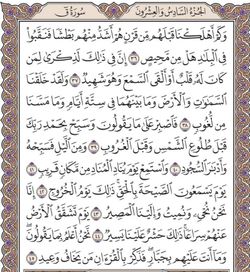 الجزء السادس والعشرون سورة ق
وَكَمْ أَهْلَكْنَا قَبْلَهُم مِّن قَرْنٍ هُمْ أَشَدُّ مِنْهُم بَطْشًا فَنَقَّبُوا۟
فِى ٱلْبِلَٰدِ هَلْ مِن مَّحِيصٍ ٣٦ إِنَّ فِى ذَٰلِكَ لَذِكْرَىٰ لِمَن
كَانَ لَهُۥ قَلْبٌ أَوْ أَلْقَى ٱلسَّمْعَ وَهُوَ شَهِيدٌ ٣٧ وَلَقَدْ خَلَقْنَا
ٱلسَّمَٰوَٰتِ وَٱلْأَرْضَ وَمَا بَيْنَهُمَا فِى سِتَّةِ أَيَّامٍ وَمَا مَسَّنَا
مِن لُّغُوبٍ ٣٨ فَٱصْبِرْ عَلَىٰ مَا يَقُولُونَ وَسَبِّحْ بِحَمْدِ رَبِّكَ
قَبْلَ طُلُوعِ ٱلشَّمْسِ وَقَبْلَ ٱلْغُرُوبِ ٣٩ وَمِنَ ٱلَّيْلِ فَسَبِّحْهُ
وَأَدْبَٰرَ ٱلسُّجُودِ ٤٠ وَٱسْتَمِعْ يَوْمَ يُنَادِ ٱلْمُنَادِ مِن مَّكَانٍ قَرِيبٍ ٤١
يَوْمَ يَسْمَعُونَ ٱلصَّيْحَةَ بِٱلْحَقِّ ذَٰلِكَ يَوْمُ ٱلْخُرُوجِ ٤٢ إِنَّا
نَحْنُ نُحْىِۦ وَنُمِيتُ وَإِلَيْنَا ٱلْمَصِيرُ ٤٣ يَوْمَ تَشَقَّقُ ٱلْأَرْضُ
عَنْهُمْ سِرَاعًا ذَٰلِكَ حَشْرٌ عَلَيْنَا يَسِيرٌ ٤٤ نَّحْنُ أَعْلَمُ بِمَا يَقُولُونَ
وَمَآ أَنتَ عَلَيْهِم بِجَبَّارٍ فَذَكِّرْ بِٱلْقُرْءَانِ مَن يَخَافُ وَعِيدِ ٤٥